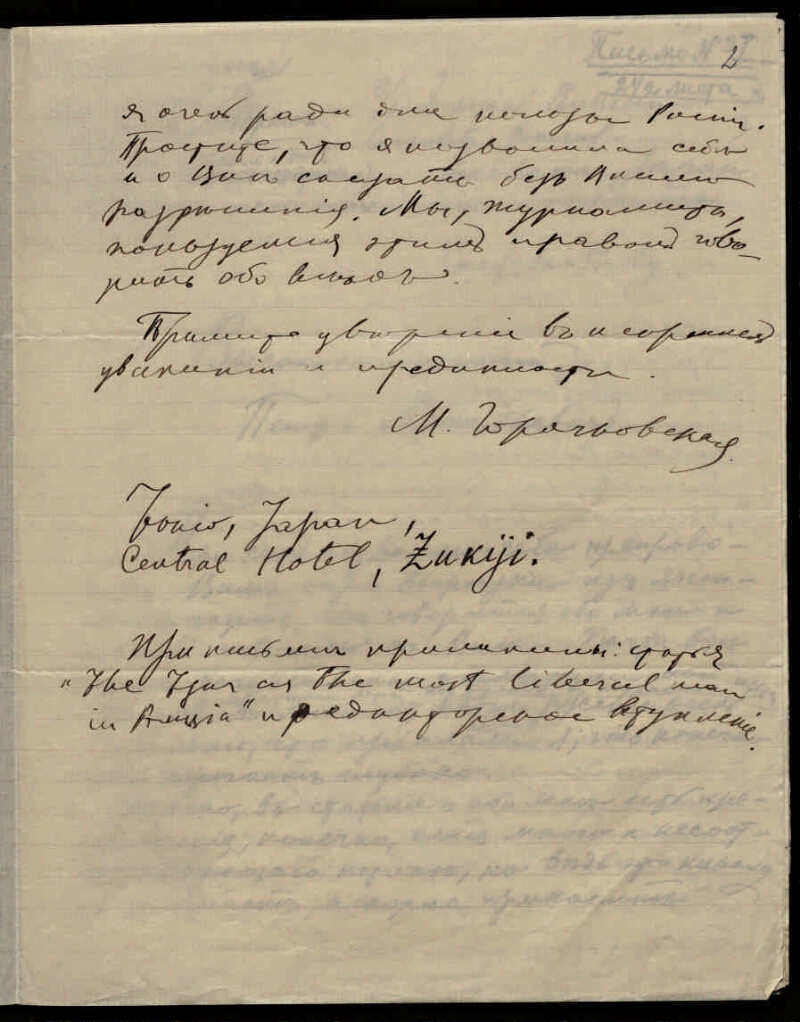 2
я очень рада для пользы Россіи.
Простите, что я позволила себѣ
и о Васъ сказать безъ Вашего
разрѣшенія. Мы, журналисты,
пользуемся этимъ правомъ гово-
рить обо всѣхъ.
Примите увѣреніе въ искреннемъ
уваженіи и преданности.
М. Горячковская.
Tokio, Japan,
Central Hotel, Zukiji.
При письмѣ приложены: статья
"The Tzar as the most liberal man
in Russia" и редакторское вступленіе.